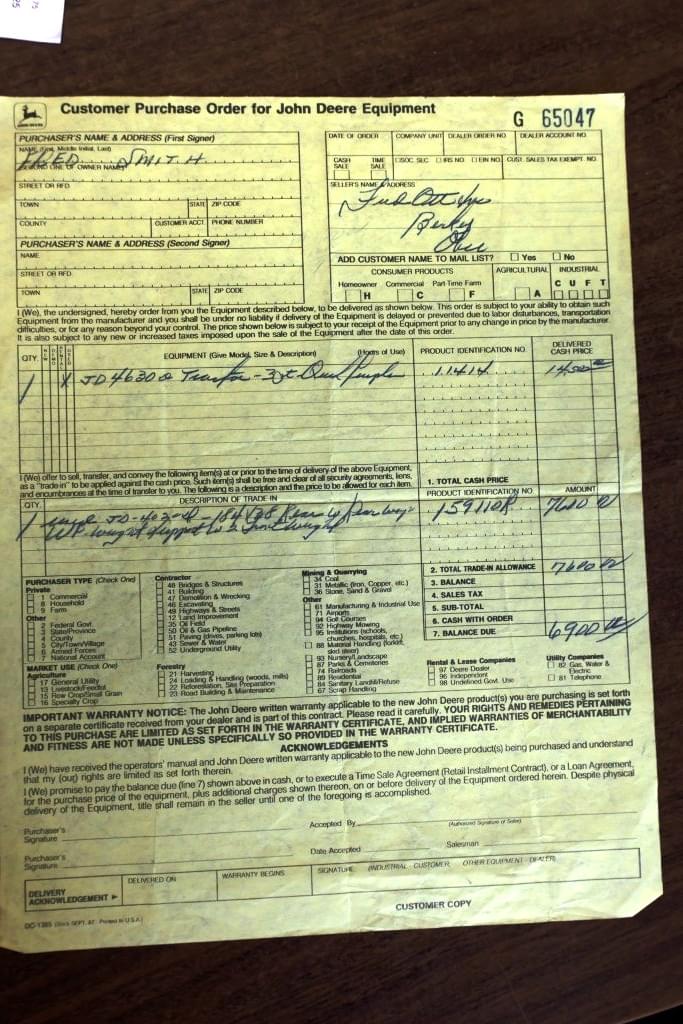 Customer Purchase Order for John Deere Equipment
G 65047
PURCHASER'S NAME & ADDRESS (First Signer)
NAME (First, Middle Initial, Last)
FRED SMITH
SECOND LINE OF OWNER NAME
STREET OR RFD
TOWN STATE ZIP CODE
COUNTY CUSTOMER ACCT. PHONE NUMBER
PURCHASER'S NAME & ADDRESS (Second Signer)
NAME
STREET OR RFD
TOWN STATE ZIP CODE
DATE OF ORDER COMPANY UNIT DEALER ORDER NO. DEALER ACCOUNT NO.
CASH SALE TIME SALE SOC. SEC. IRS NO. EIN NO. CUST. SALES TAX EXEMPT. NO.
SELLER'S NAME & ADDRESS
ADD CUSTOMER NAME TO MAIL LIST? Yes No
CONSUMER PRODUCTS AGRICULTURAL INDUSTRIAL
Homeowner Commercial Part-Time Farm C U F T
H C F A
I (We), the undersigned, hereby order from you the Equipment described below, to be delivered as shown below. This order is subject to your ability to obtain such
Equipment from the manufacturer and you shall be under no liability if delivery of the Equipment is delayed or prevented due to labor disturbances, transportation
difficulties, or for any reason beyond your control. The price shown below is subject to your receipt of the Equipment prior to any change in price by the manufacturer.
It is also subject to any new or increased taxes imposed upon the sale of the Equipment after the date of this order.
QTY. EQUIPMENT (Give Model, Size & Description) (Hours of Use) PRODUCT IDENTIFICATION NO. DELIVERED CASH PRICE
1 X JD 4630 Tractor 11414 14,500
I (We) offer to sell, transfer, and convey the following item(s) at or prior to the time of delivery of the above Equipment,
as a "trade-in" to be applied against the cash price. Such item(s) shall be free and clear of all security agreements, liens,
and encumbrances at the time of transfer to you. The following is a description and the price to be allowed for each item.
1. TOTAL CASH PRICE
QTY. DESCRIPTION OF TRADE-IN PRODUCT IDENTIFICATION NO. AMOUNT
1 JD 159110R 7600
2. TOTAL TRADE-IN ALLOWANCE 7600
3. BALANCE
4. SALES TAX
5. SUB-TOTAL
6. CASH WITH ORDER
7. BALANCE DUE 6900
PURCHASER TYPE (Check One)
Private
1 Commercial
8 Household
9 Farm
Other
2 Federal Govt.
3 State/Province
4 County
5 City/Town/Village
6 Armed Forces
7 National Account
MARKET USE (Check One)
Agriculture
17 General Utility
13 Livestock/Feedlot
15 Row Crop/Small Grain
16 Specialty Crop
Contractor
48 Bridges & Structures
41 Building
47 Demolition & Wrecking
46 Excavating
49 Highways & Streets
12 Land Improvement
35 Oil Field
50 Oil & Gas Pipeline
51 Paving (drives, parking lots)
43 Sewer & Water
52 Underground Utility
Forestry
21 Harvesting
24 Loading & Handling (woods, mills)
22 Reforestation, Site Preparation
23 Road Building & Maintenance
Mining & Quarrying
34 Coal
31 Metallic (Iron, Copper, etc.)
36 Stone, Sand & Gravel
Other
61 Manufacturing & Industrial Use
71 Airports
94 Golf Courses
92 Highway Mowing
95 Institutions (schools, churches, hospitals, etc.)
88 Material Handling (forklift, skid steer)
93 Nursery/Landscape
87 Parks & Cemeteries
74 Railroads
89 Residential
84 Sanitary Landfill/Refuse
67 Scrap Handling
Rental & Lease Companies
97 Deere Dealer
96 Independent
98 Undefined Govt. Use
Utility Companies
82 Gas, Water & Electric
81 Telephone
IMPORTANT WARRANTY NOTICE: The John Deere written warranty applicable to the new John Deere product(s) you are purchasing is set forth
on a separate certificate received from your dealer and is part of this contract. Please read it carefully. YOUR RIGHTS AND REMEDIES PERTAINING
TO THIS PURCHASE ARE LIMITED AS SET FORTH IN THE WARRANTY CERTIFICATE, AND IMPLIED WARRANTIES OF MERCHANTABILITY
AND FITNESS ARE NOT MADE UNLESS SPECIFICALLY SO PROVIDED IN THE WARRANTY CERTIFICATE.
ACKNOWLEDGEMENTS
I (We) have received the operators' manual and John Deere written warranty applicable to the new John Deere product(s) being purchased and understand
that my (our) rights are limited as set forth therein.
I (We) promise to pay the balance due (line 7) shown above in cash, or to execute a Time Sale Agreement (Retail Installment Contract), or a Loan Agreement,
for the purchase price of the equipment, plus additional charges shown thereon, on or before delivery of the Equipment ordered herein. Despite physical
delivery of the Equipment, title shall remain in the seller until one of the foregoing is accomplished.
Purchaser's Signature Accepted By (Authorized Signature of Seller)
Purchaser's Signature Date Accepted Salesman
DELIVERY ACKNOWLEDGEMENT DELIVERED ON WARRANTY BEGINS SIGNATURE (INDUSTRIAL - CUSTOMER, OTHER EQUIPMENT - DEALER)
DC-1385 (Stock SEPT. 87 Printed in U.S.A.)
CUSTOMER COPY